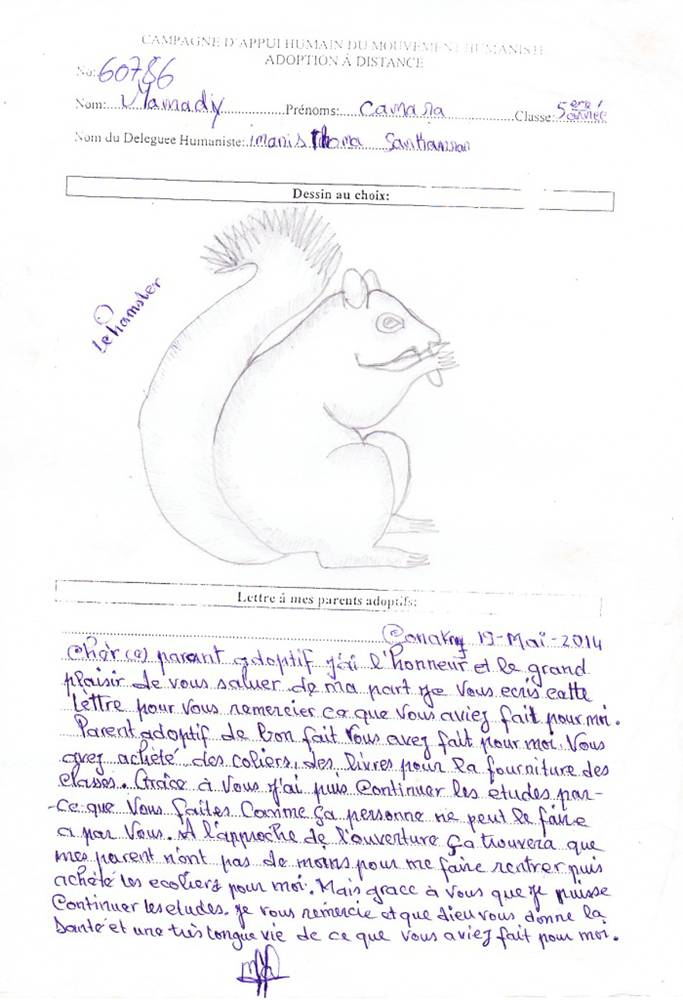 CAMPAGNE D'APPUI HUMAIN DU MOUVEMENT HUMANISTE
ADOPTION À DISTANCE
No: 60786
Nom: Mamady Prénoms: Camara Classe: 5ere année
Nom du Deleguee Humaniste: imanis
Dessin au choix:
Le hamster
Lettre à mes parents adoptifs:
Conakry 19-Mai-2014
Chèr(e) parent adoptif j'ai l'honneur et le grand
plaisir de vous saluer de ma part je vous ecris cette
Lettre pour vous remercier ce que vous aviez fait pour moi.
Parent adoptif de bon fait vous avez fait pour moi. Vous
avez achèté des coliers, des livres pour la fourniture des
classes. Grâce à vous j'ai puis continuer les études par-
-ce que vous faites comme ça personne ne peut le faire
a par vous. A l'approche de l'ouverture ça trouvera que
mes parent n'ont pas de moins pour me faire rentrer puis
achèté les ecoliers pour moi. Mais grace à vous que je puisse
continuer les etudes. je vous remercie et que dieu vous donne la
Santé et une très longue vie de ce que vous aviez fait pour moi.